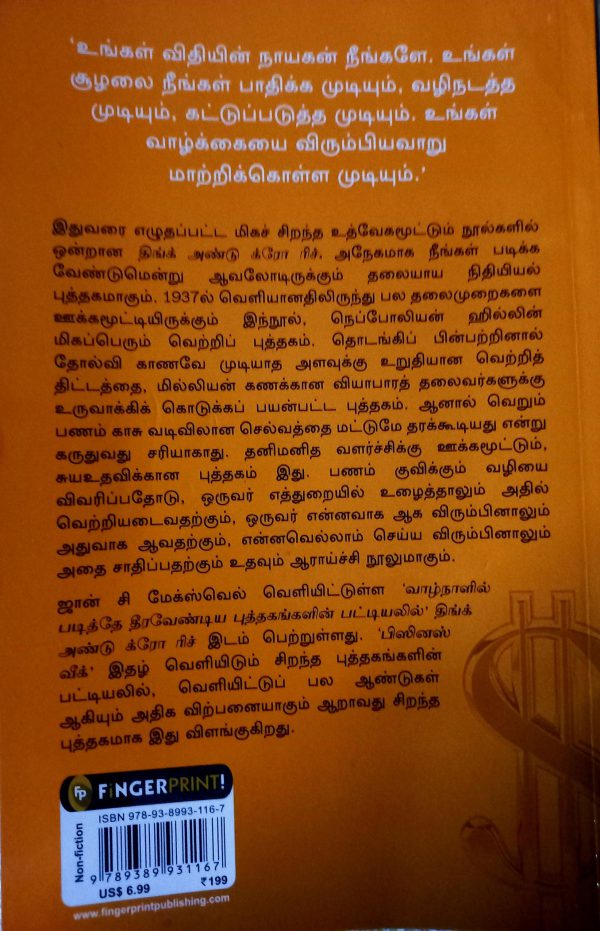 ‘உங்கள் விதியின் நாயகன் நீங்களே. உங்கள்
சூழலை நீங்கள் பாதிக்க முடியும், வழிநடத்த
முடியும், கட்டுப்படுத்த முடியும். உங்கள்
வாழ்க்கையை விரும்பியவாறு
மாற்றிக்கொள்ள முடியும்.’
இதுவரை எழுதப்பட்ட மிகச் சிறந்த உத்வேகமூட்டும் நூல்களில்
ஒன்றான திங்க் அண்டு க்ரோ ரிச், அநேகமாக நீங்கள் படிக்க
வேண்டுமென்று ஆவலோடிருக்கும் தலையாய நிதியியல்
புத்தகமாகும். 1937ல் வெளியானதிலிருந்து பல தலைமுறைகளை
ஊக்கமூட்டியிருக்கும் இந்நூல், நெப்போலியன் ஹில்லின்
மிகப்பெரும் வெற்றிப் புத்தகம். தொடங்கிப் பின்பற்றினால்
தோல்வி காணவே முடியாத அளவுக்கு உறுதியான வெற்றித்
திட்டத்தை, மில்லியன் கணக்கான வியாபாரத் தலைவர்களுக்கு
உருவாக்கிக் கொடுக்கப் பயன்பட்ட புத்தகம். ஆனால் வெறும்
பணம் காசு வடிவிலான செல்வத்தை மட்டுமே தரக்கூடியது என்று
கருதுவது சரியாகாது. தனிமனித வளர்ச்சிக்கு ஊக்கமூட்டும்,
சுயஉதவிக்கான புத்தகம் இது. பணம் குவிக்கும் வழியை
விவரிப்பதோடு, ஒருவர் எத்துறையில் உழைத்தாலும் அதில்
வெற்றியடைவதற்கும், ஒருவர் என்னவாக ஆக விரும்பினாலும்
அதுவாக ஆவதற்கும், என்னவெல்லாம் செய்ய விரும்பினாலும்
அதை சாதிப்பதற்கும் உதவும் ஆராய்ச்சி நூலுமாகும்.
ஜான் சி மேக்ஸ்வெல் வெளியிட்டுள்ள ‘வாழ்நாளில்
படித்தே தீரவேண்டிய புத்தகங்களின் பட்டியலில்’ திங்க்
அண்டு க்ரோ ரிச் இடம் பெற்றுள்ளது. ‘பிஸினஸ்
வீக்’ இதழ் வெளியிடும் சிறந்த புத்தகங்களின்
பட்டியலில், வெளியிட்டுப் பல ஆண்டுகள்
ஆகியும் அதிக விற்பனையாகும் ஆறாவது சிறந்த
புத்தகமாக இது விளங்குகிறது.
FP FiNGERPRINT!
ISBN 978-93-8993-116-7
Non-fiction
9 789389 931167
US$ 6.99 ₹199
www.fingerprintpublishing.com